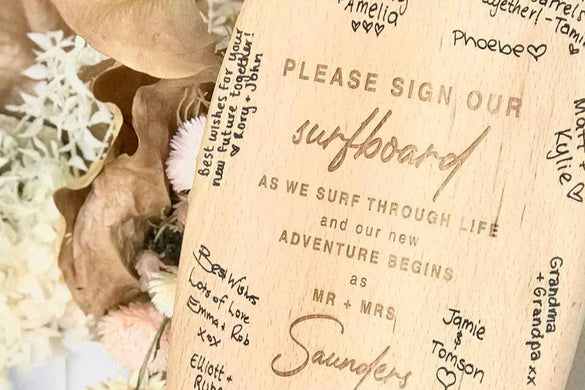 Amelia
together! - Tami
Phoebe
Best wishes for your
new future together!
Rory + John
PLEASE SIGN OUR
surfboard
AS WE SURF THROUGH LIFE
and our new
ADVENTURE BEGINS
as
MR + MRS
Saunders
+
Kylie
Best Wishes
Lots of Love
Emma + Rob
xox
Elliott +
Jamie
&
Tomson
Grandma
+ Grandpa xx